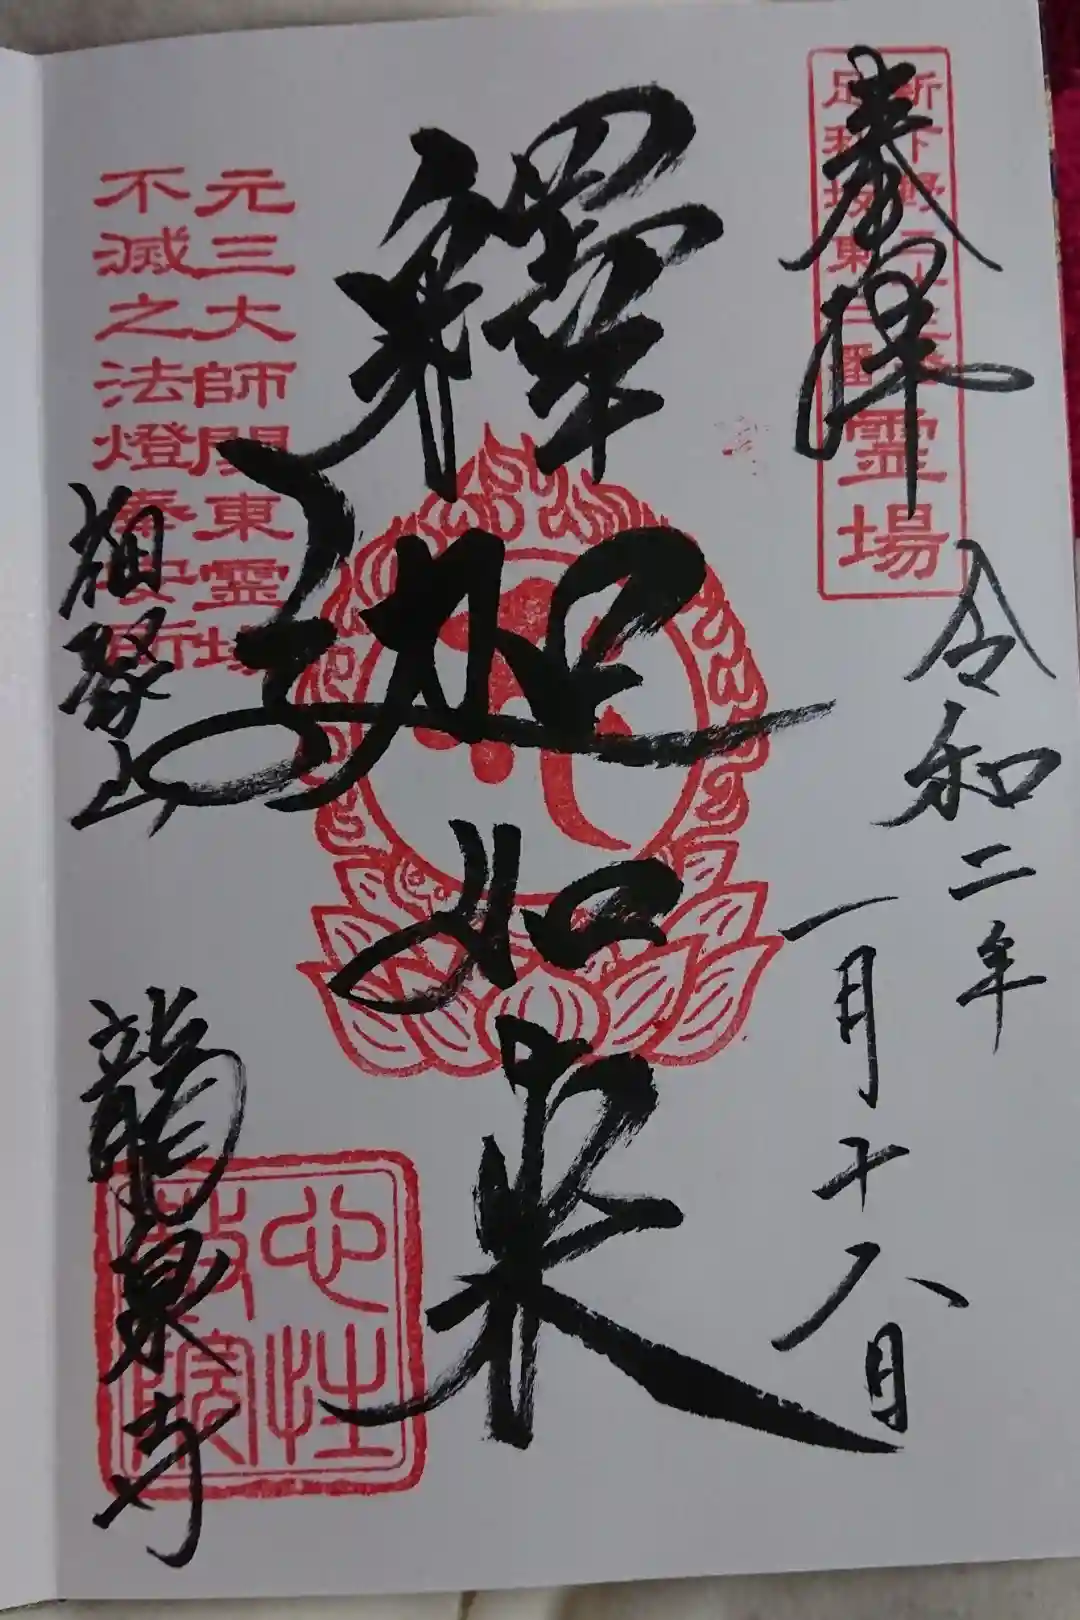 奉拝
新下野三十三番霊場
足利坂東三番
令和二年
一月十八日
釋迦如来
元三大師関東霊場
不滅之法燈奉安所
福聚山
龍泉寺
心性
教院